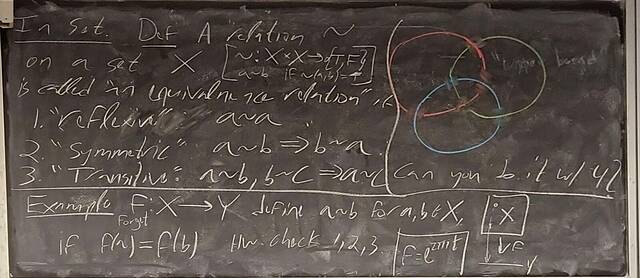 In Set. Def A "relation" ~
on a set X [~: X×X→{T,F},
a~b if ~(a,b)=T]
is called "an equivalence relation", if
1. "reflexive": a~a
2. "Symmetric" a~b ⟹ b~a.
3. "Transitive" a~b, b~c ⟹ a~c
Can you do it w/ 4?
Example F: X → Y define a~b for a,b∈X,
Forget
if f(a) = f(b) HW. check 1,2,3.
X
↓F
Y